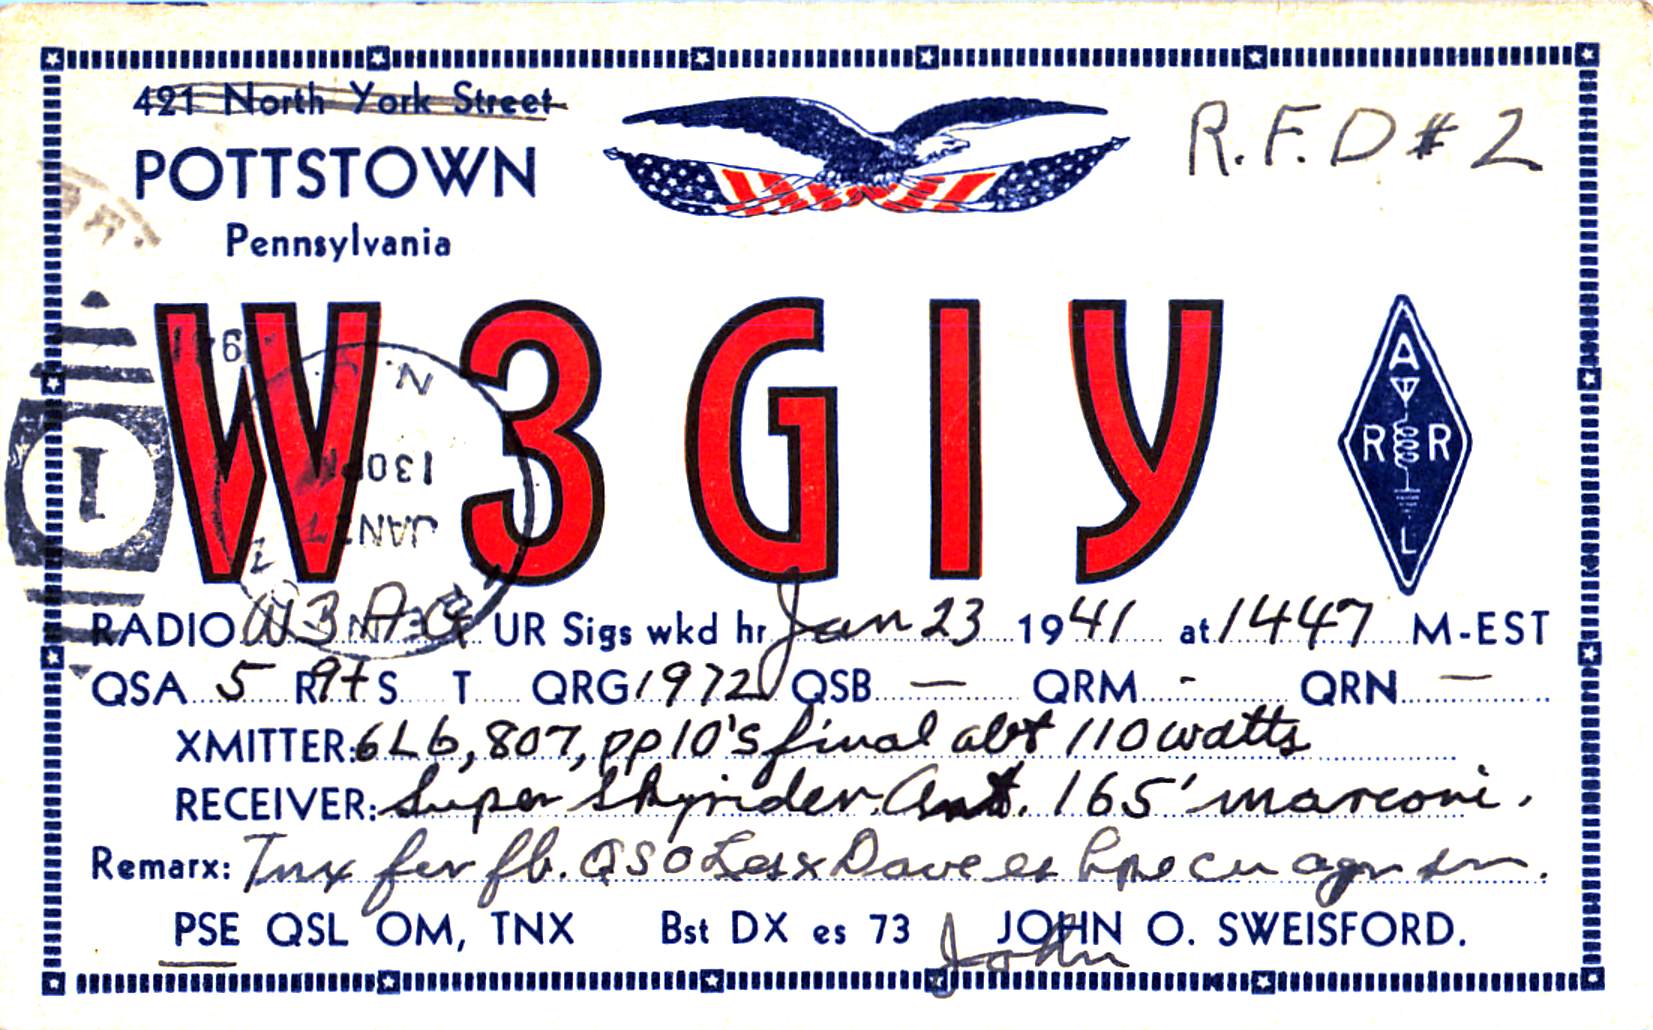 421 North York Street
R.F.D #2
POTTSTOWN
Pennsylvania
W3GIY
A
R R
L
N.
130PM
JAN
1
RADIO W3 UR Sigs wkd hr Jan 23 1941 at 1447 M-EST
QSA 5 R9+ S T QRG 1972 QSB — QRM - QRN —
XMITTER: 6L6, 807, pp 10's final abt 110 watts
RECEIVER: Super Skyrider. Ant. 165' marconi.
Remarx: Tnx fer fb. QSO Les x Dave es hpe cu agn sn.
PSE QSL OM, TNX Bst DX es 73 JOHN O. SWEISFORD.
John